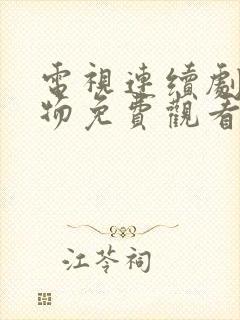 電視連續劇
物免費觀看
江苓祠